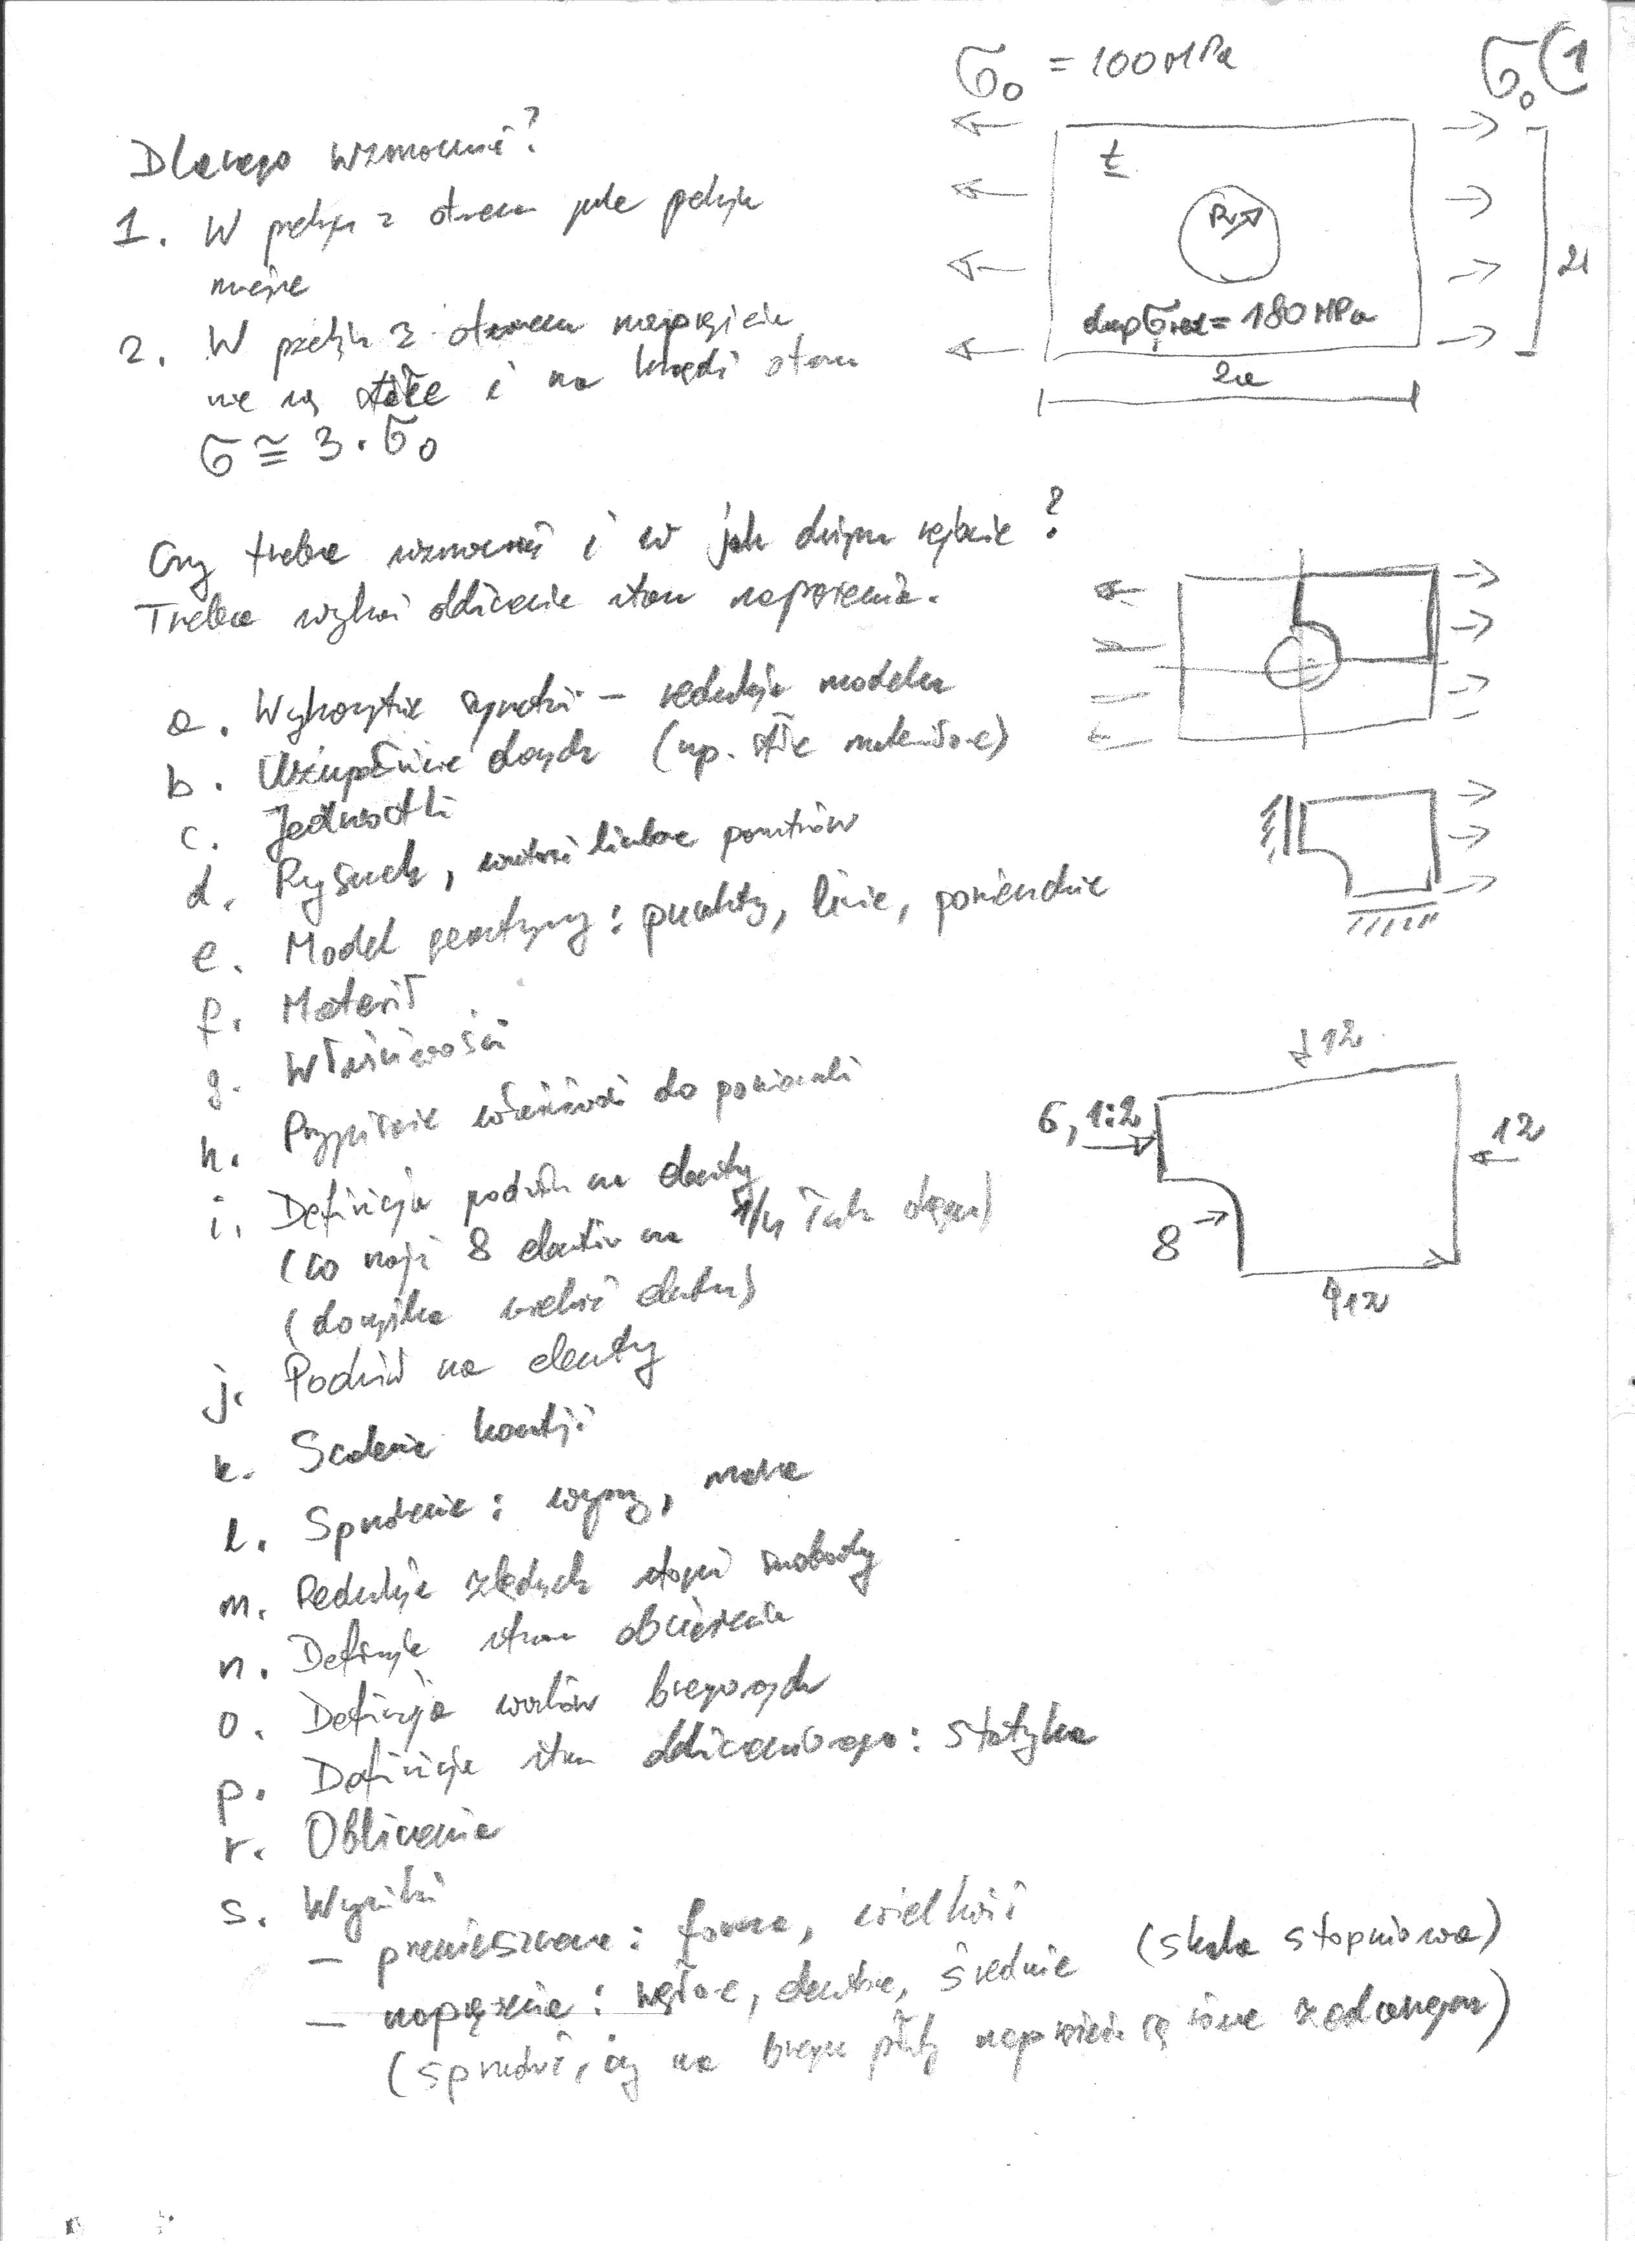 σ₀ = 100 MPa
σ₀ (1
Dlaczego wzmocnić?
1. W przekroju z otworem pole przekroju
mniejsze
2. W przekroju z otworem naprężenia
nie są stałe i na krawędzi otworu
σ ≅ 3 · σ₀
t
R
dop σred = 180 MPa
2a
Czy trzeba wzmocnić i w jak dużym rejonie?
Trzeba wykonać obliczenie stanu naprężenia.
a. Wykorzystanie symetrii – redukcja modelu
b. Uzupełnienie danych (np. stałe materiałowe)
c. Jednostki
d. Rysunek, wartości liczbowe
e. Model geometryczny: punkty, linie, powierzchnie
f. Materiał
g. Właściwości
h. Przypisanie właściwości do powierzchni
i. Definicja podziału na elementy
(co najmniej 8 elementów na 1/4 łuku okręgu)
(elementu)
j. Podział na elementy
k. Scalenie
l. Sprawdzenie: wymiary, masa
m. Redukcja zbędnych stopni swobody
n. Definicja stanu obciążenia
o. Definicja warunków brzegowych
p. Definicja stanu obliczeniowego: statyka
r. Obliczenia
s. Wyniki
– przemieszczenia: forma, wielkość
– naprężenia: węzłowe, elementowe, średnie (skala stopniowa)
(sprawdzić, czy na brzegu płyty naprężenia są równe zadanym)
12
6, 1:2
12
8
12